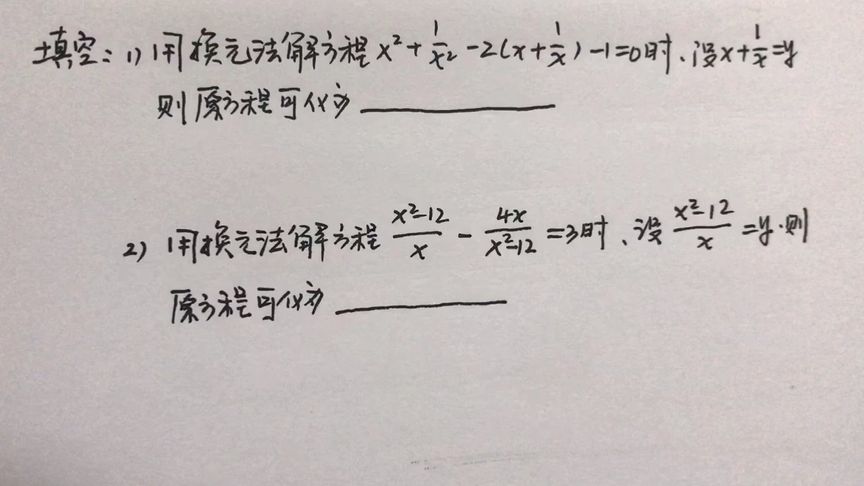 填空:1)用换元法解方程x²+1/x²-2(x+1/x)-1=0时、设x+1/x=y
则原方程可化为________
2)用换元法解方程(x²-12)/x - 4x/(x²-12)=3时、设(x²-12)/x=y.则
原方程可化为________